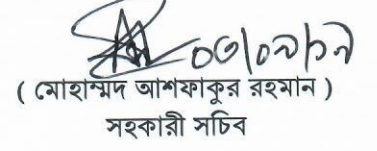 ০৩|০৯|১৭
( মোহাম্মদ আশফাকুর রহমান )
সহকারী সচিব